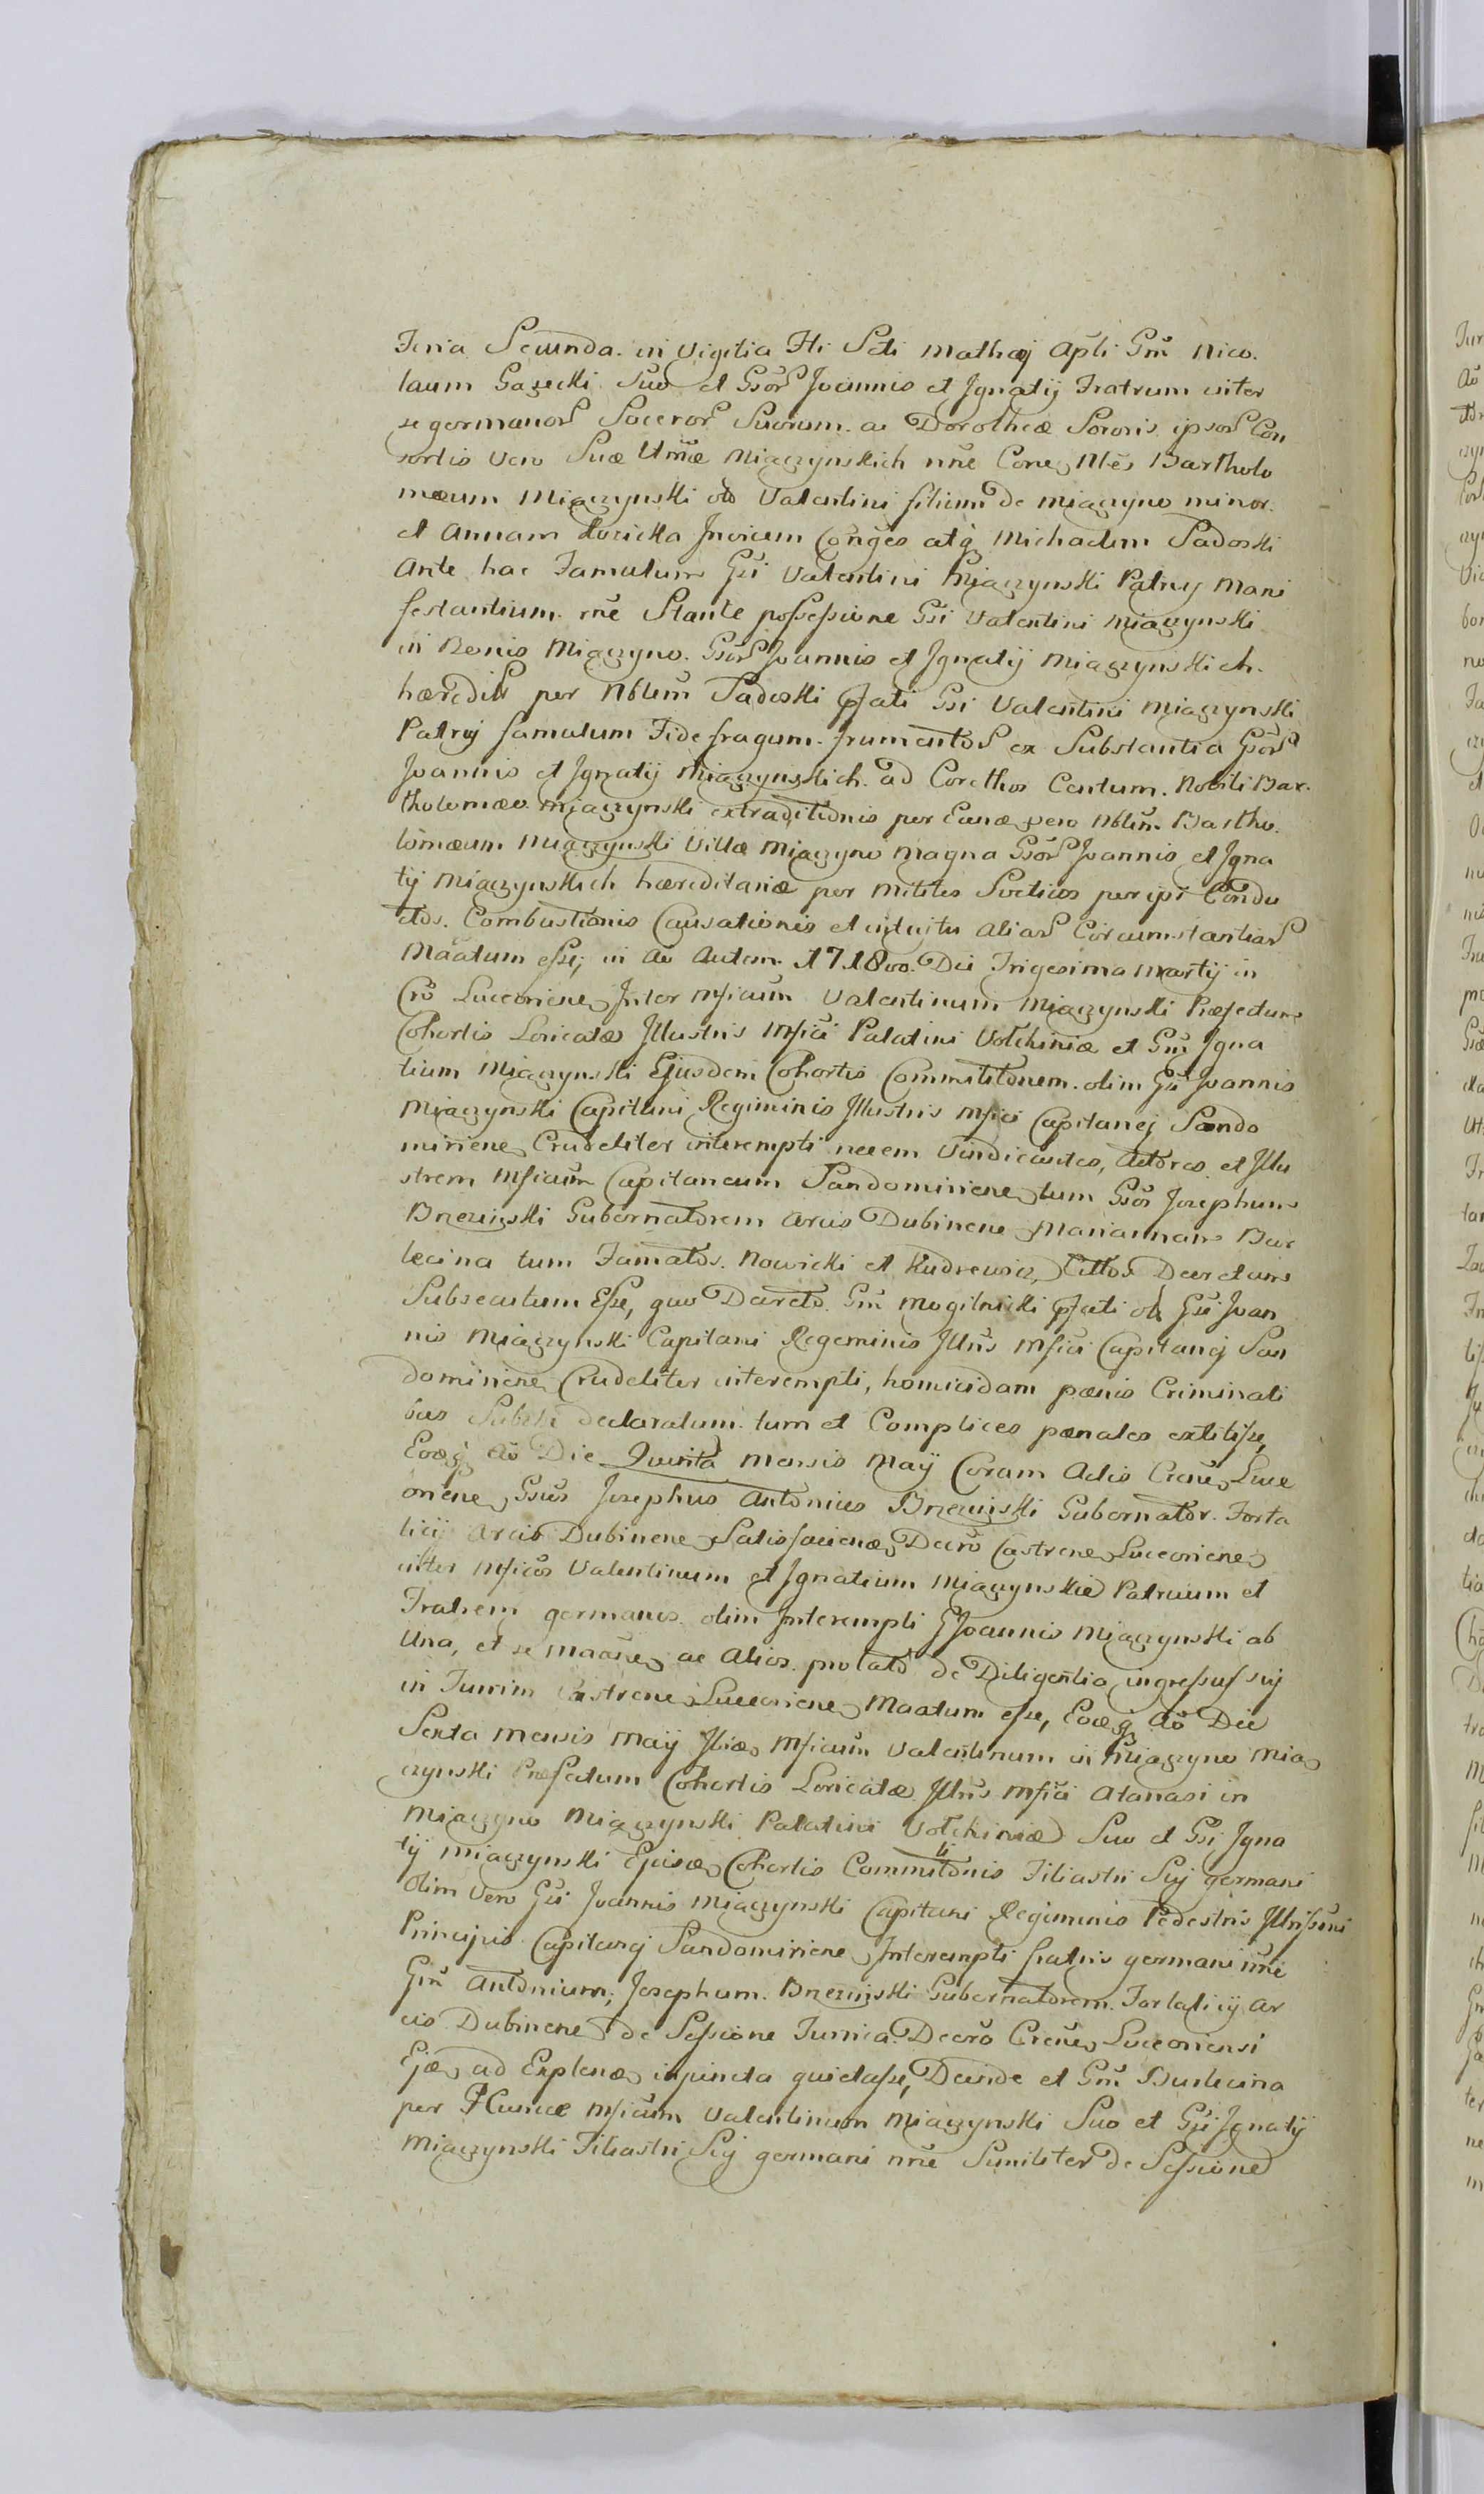 Feria Secunda. in Vigilia Fti Scti Mathaj Apli Gsm̃ Nico.
laum Gazecki Suo et Gsor̃ Joannis et Ignatij Fratrum inter
se germanor Soceror Suorum. ac Dorotheæ Sororis ipsor Con
sortis Vero Suæ Miączynskich nñe Cone Nlẽs Bartholo
mæum Miączynski olo Valentini filium de Miączyno minor.
et Annam Invicem Conges̃ atq̃ Michaelem Sadoski
Ante hac Famulum Gsi Valentini Miączynski Patruj Mani
festantium. nñe Stante possessione Gsi Valentini Miączynski
in Bonis Miączyno. Gsor̃ Joannis et Ignatij Miączynskich.
hæredit̃ per Nblem̃ Sadoski pfati Gsi Valentini Miączynski
Patruj famulum Fidefragum. frumentor ex Substantia Gsor̃
Joannis et Ignatij Miączynskich. ad Corethos Centum. Nobili Bar.
tholomæo Miączynski extraditionis per Eunæ vero Nblem̃ Bartho.
lomæum Miączynski Villæ Miączyno Magna Gsor̃ Joannis et Igna
tij Miączynskich hæreditariæ per Milites Sveticos per ips̃ Condu
ctos. Combustionis Causationis et intuitu aliar Circumstantiar
Maãtum esse, in Aõ Autem 1718vo. Die Trigesima Martij in
Crõ Luceoriene Inter Mficum̃ Valentinum Miączynski Præfectum
Cohortis Loricatæ Illustris Mfici Palatini Volhiniæ et Gsm̃ Igna
tium Miączynski Ejusdem Cohortis Commilitonem. olim Gsi Joannis
Miączynski Capitani Regiminis Illustris Mfici Capitanej Sando
miriene Crudeliter interempti necem Vindicantes, Actores et Illu
strem Mficum̃ Capitaneum Sandomiriene tum Gsos̃ Josephum
Brzezinski Gubernatorem Arcis Dubinene Mariannam Bur
lecina tum Famatos. Nowicki et Kudrewicz, Cittos Decretum
Subsecutum Esse, quo Decreto. Gsm̃ Mogilnicki pfati ol̃ Gsi Joan
nis Miączynski Capitani Regiminis Illris̃ Mfici Capitanej San
domiriene Crudeliter interempti, homicidam pænis Criminali
bus declaratum. tum et Complices pænales extitisse,
Eoæq̃ Aõ Die Quinta Mensis Maij Coram Actis Crene Luce
oriene Gsus̃ Josephus Antonius Brzezinski Gubernator. Forta
licij Arcis Dubinene Satisfaciene Decrõ Castrene Luceoriene
inter Mficos̃ Valentinum et Ignatium Miączynskie Patruum et
Fratrem germanos. olim Interempti G Joannis Miączynski ab
Una, et se Maãne ac Alios. prolato de Diligentia ingressus sui
in Turrim Castrene Luceoriene Maatum esse, Eoæq̃ Aõ Die
Sexta Mensis Maij Ibiæ Mficum̃ Valentinum in Miączyno Mia
czynski Præfatum Cohortis Loricatæ. Illris̃ Mfici Atanasi in
Miączyno Miączynski Palatini Volhiniæ Suo et Gsi Igna
tij Miączynski Ejusæ Cohortis Commilitonis Filiastri Sui germani
olim Vero Gsi Joannis Miączynski Capitani Regiminis Pedestris Illrissimi
Principis Capitanej Sandomiriene Interempti fratris germani nñe
Gsm̃ Antonium, Josephum. Brzezinski Gubernatorem. Fortalicij Ar
cis Dubinene de Sessione Turrica Decrõ Crene Luceoriensi
Ejæ ad Explenæ injuncta quietasse, Deinde et Gsm̃ Burlecina
per Hunce Mficum̃ Valentinum Miączynski Suo et Gsi Ignatij
Miączynski Filiastri Sui germani nñe Similiter de Sessione